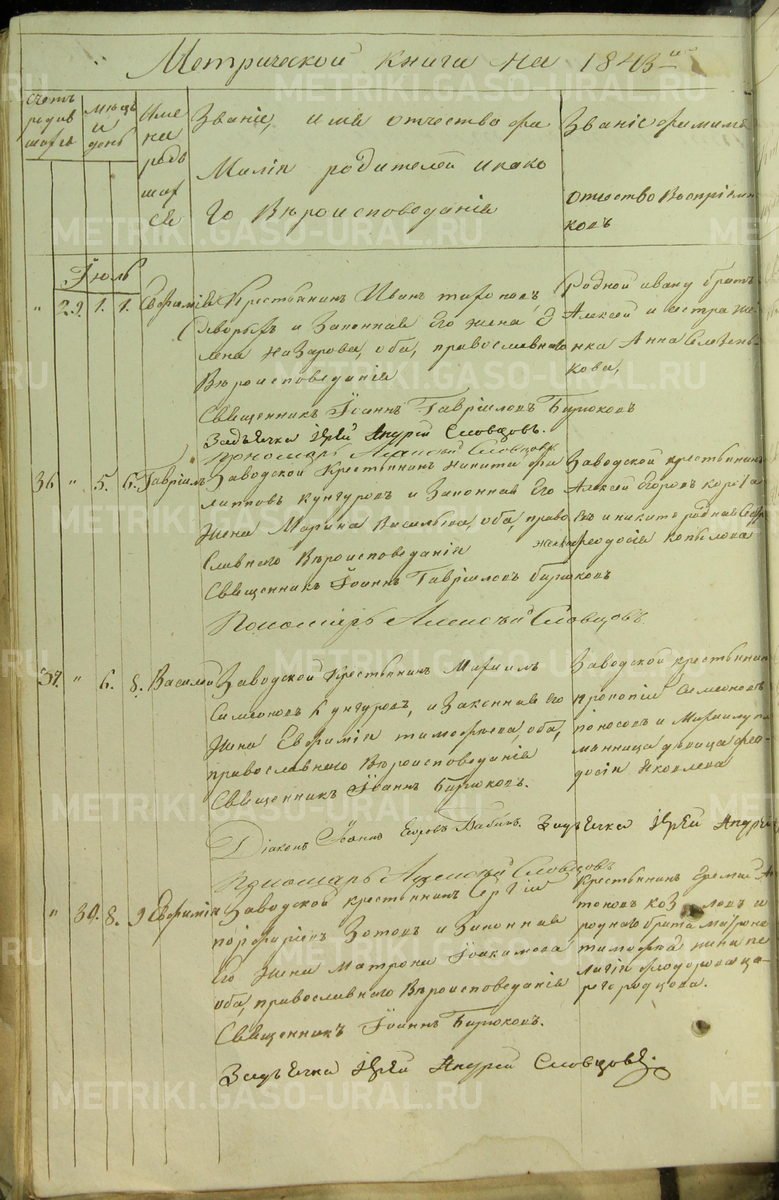 Метрической книги на 1843й
Счетъ родившихся
Мѣсяцъ и день
Имена родившихся
Званіе, имя отчество фамилія родителей и какого Вѣроисповеданія
Званіе фамилія отчество Воспріемниковъ
Іюль
" 29. 1. 1. Евфимія
Крестьянинъ Иванъ
и Законная Его жена Елена Назарова, оба, православнаго
Вѣроисповеданія
Священникъ Іоаннъ Гавріиловъ Бирюковъ
Задьячка Іерей Андрей Словцовъ.
Пономарь Алексѣй Словцовъ
Родной ивану братъ
Алексѣй и
Анна
36 " 5. 6. Гавріилъ
Заводской Крестьянинъ Никита Филипповъ Кунгуровъ и Законная Его
Жена Марина Васильева, оба, православнаго Вѣроисповеданія
Священникъ Іоаннъ Гавріиловъ Бирюковъ
Пономарь Алексѣй Словцовъ
Заводской крестьянинъ
Алексѣй Егоровъ
и никите родная
Феодосія Копылова
37. " 6. 8. Василей
Заводской Крестьянинъ Михаилъ
Симеоновъ Кунгуровъ, и Законная его
Жена Евфимія тимофѣева оба,
православнаго Вѣроисповеданія
Священникъ Іоаннъ Бирюковъ.
Діаконъ Іоаннъ Егоровъ Бабинъ. Задьячка Іерей Андрей
Пономарь Алексѣй Словцовъ
Заводской крестьянинъ
прокопій Симеоновъ
поносовъ и Михаилу племянница дѣвица феодосія Яковлева
" 30. 8. 9. Евфимія
Заводской крестьянинъ Сергій
порфиріевъ Зотовъ и Законная
Его Жена Матрона Іоакимова
оба, православнаго Вѣроисповеданія
Священникъ Іоаннъ Бирюковъ.
Задьячка Іерей Андрей Словцовъ.
Крестьянинъ Еремей Антоновъ Козловъ и
роднаго брата
тимофея жена пелагія Федорова
METRIKI.GASO-URAL.RU